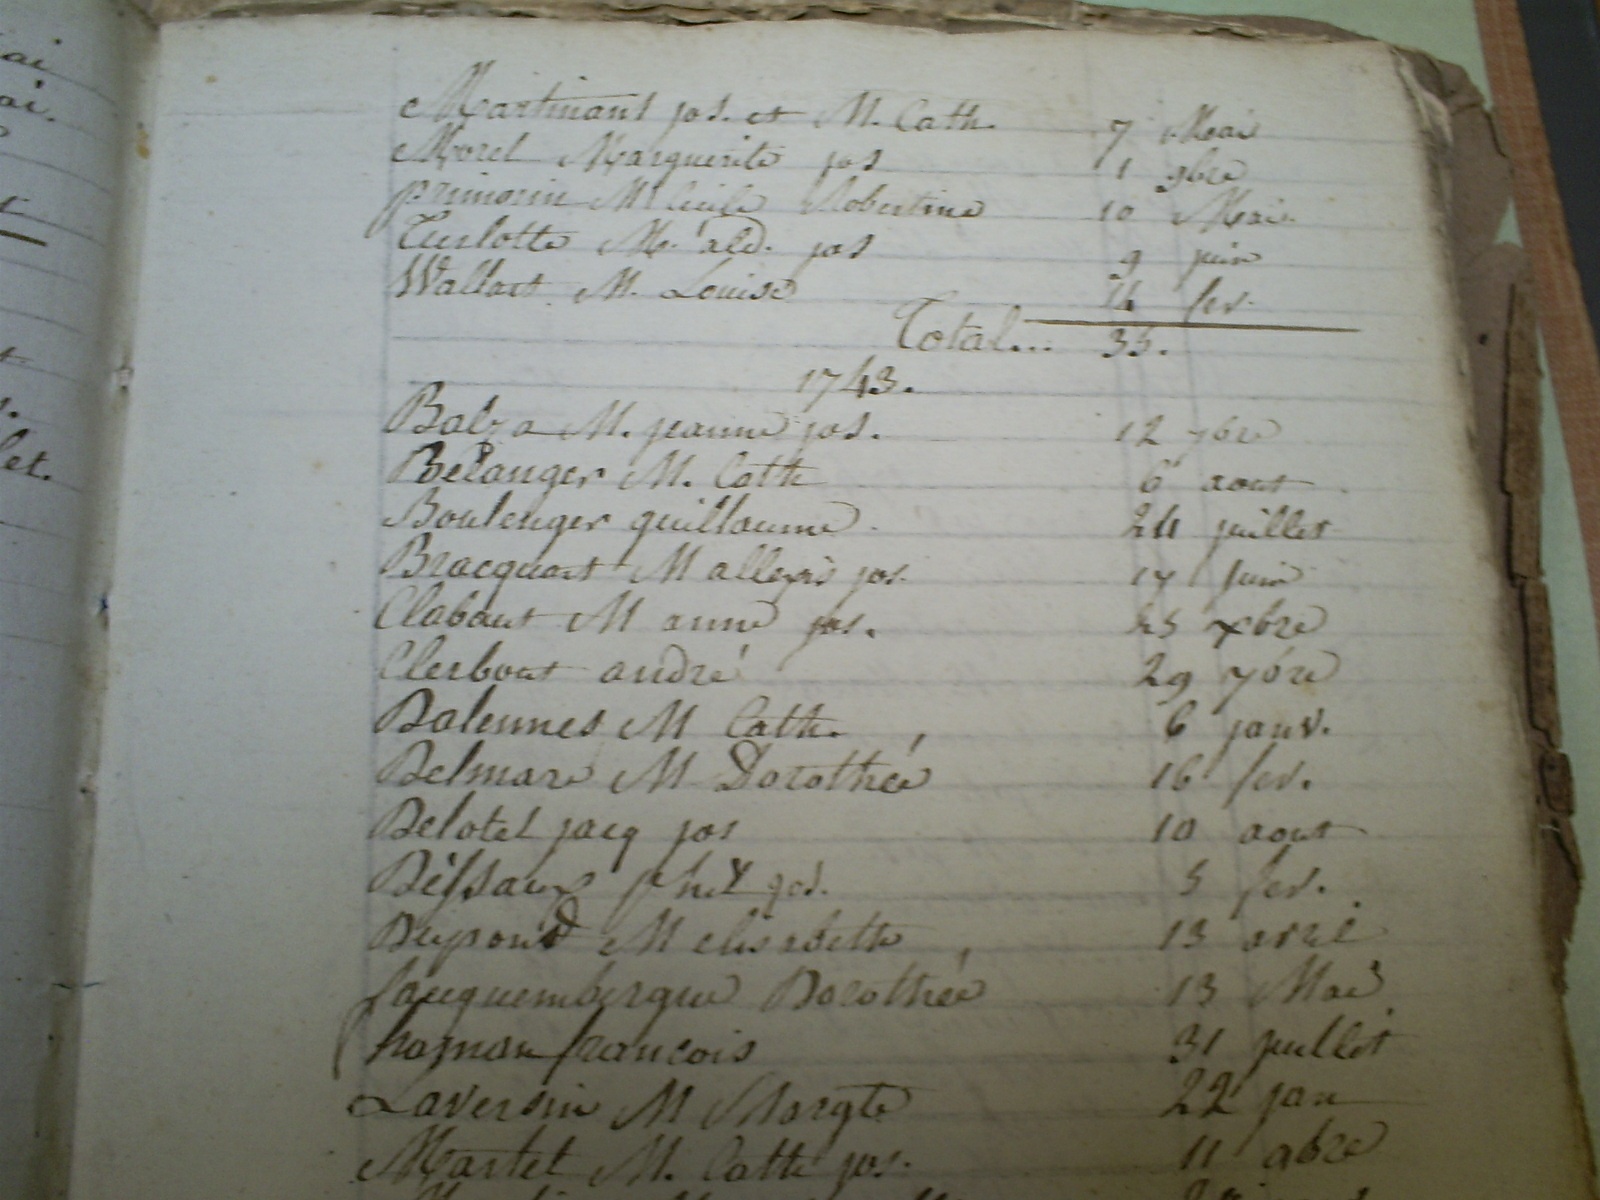 Martinant jos. et M. Cath. 7 Mai
Morel Marguerite jos 1 9bre
primorin M Cicile Robertine 10 Mai
Turlotte M. ald. jos 9 juin
Wallart M. Louise 14 fev.
Total... 35.
1743.
Balza M. jeanne jos. 12 7bre
Bélanger M. Cath 6 aout
Boulenger guillaume 24 juillet
Bracquart M allexis jos. 17 juin
Clabaut M anne jos. 25 xbre
Clerbout andré 29 7bre
Dalennes M Cath. 6 janv.
Delmare M Dorothée 16 fev.
Delotel jacq jos 10 aout
Deffaux jos. 5 fev.
Dupond M elisabeth 13 avril
fauquembergue Dorothée 13 Mai
haman francois 31 juillet
Laversin M Margte 22 jan
Martel M. Cath jos. 11 9bre